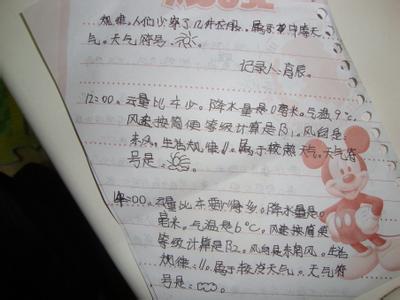 规律。人们少穿了几件衣服。属于
气。天气符号:
记录人:育辰。
12:00。云量比本少。降水量是0毫米。气温9℃。
风速按简便等级计算是B1。风向是
东风。生活规律:11。属于较热天气。天气符
号是:
:00。云量比本要少得多。降水量是0
毫米。气温是6℃。风速按简便
等级计算是B2。风向是东南风。生活
规律:11。属于较冷天气。天气符
号是: